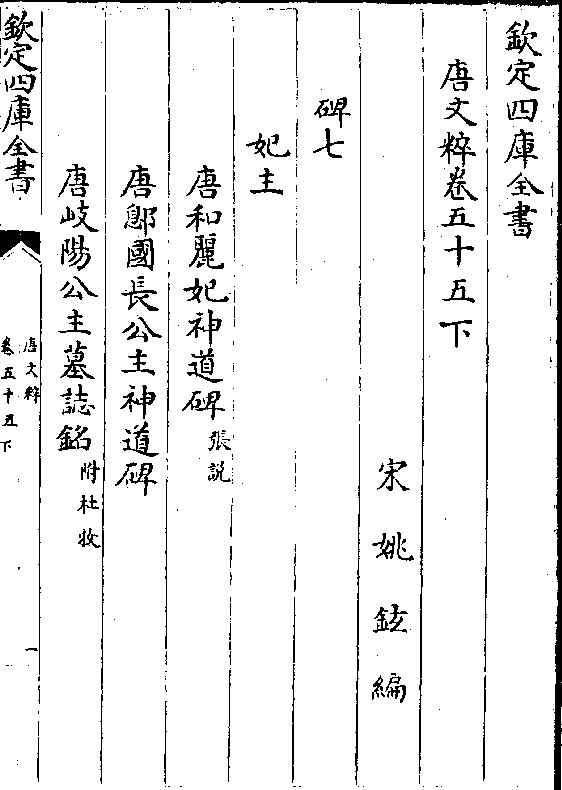 欽定四庫全書
唐文粹卷五十五下
宋姚鉉編
碑七
妃主
唐和麗妃神道碑張説
唐鄎國長公主神道碑
唐岐陽公主墓誌銘附杜牧
欽定四庫全書
唐文粹
卷五十五下
一